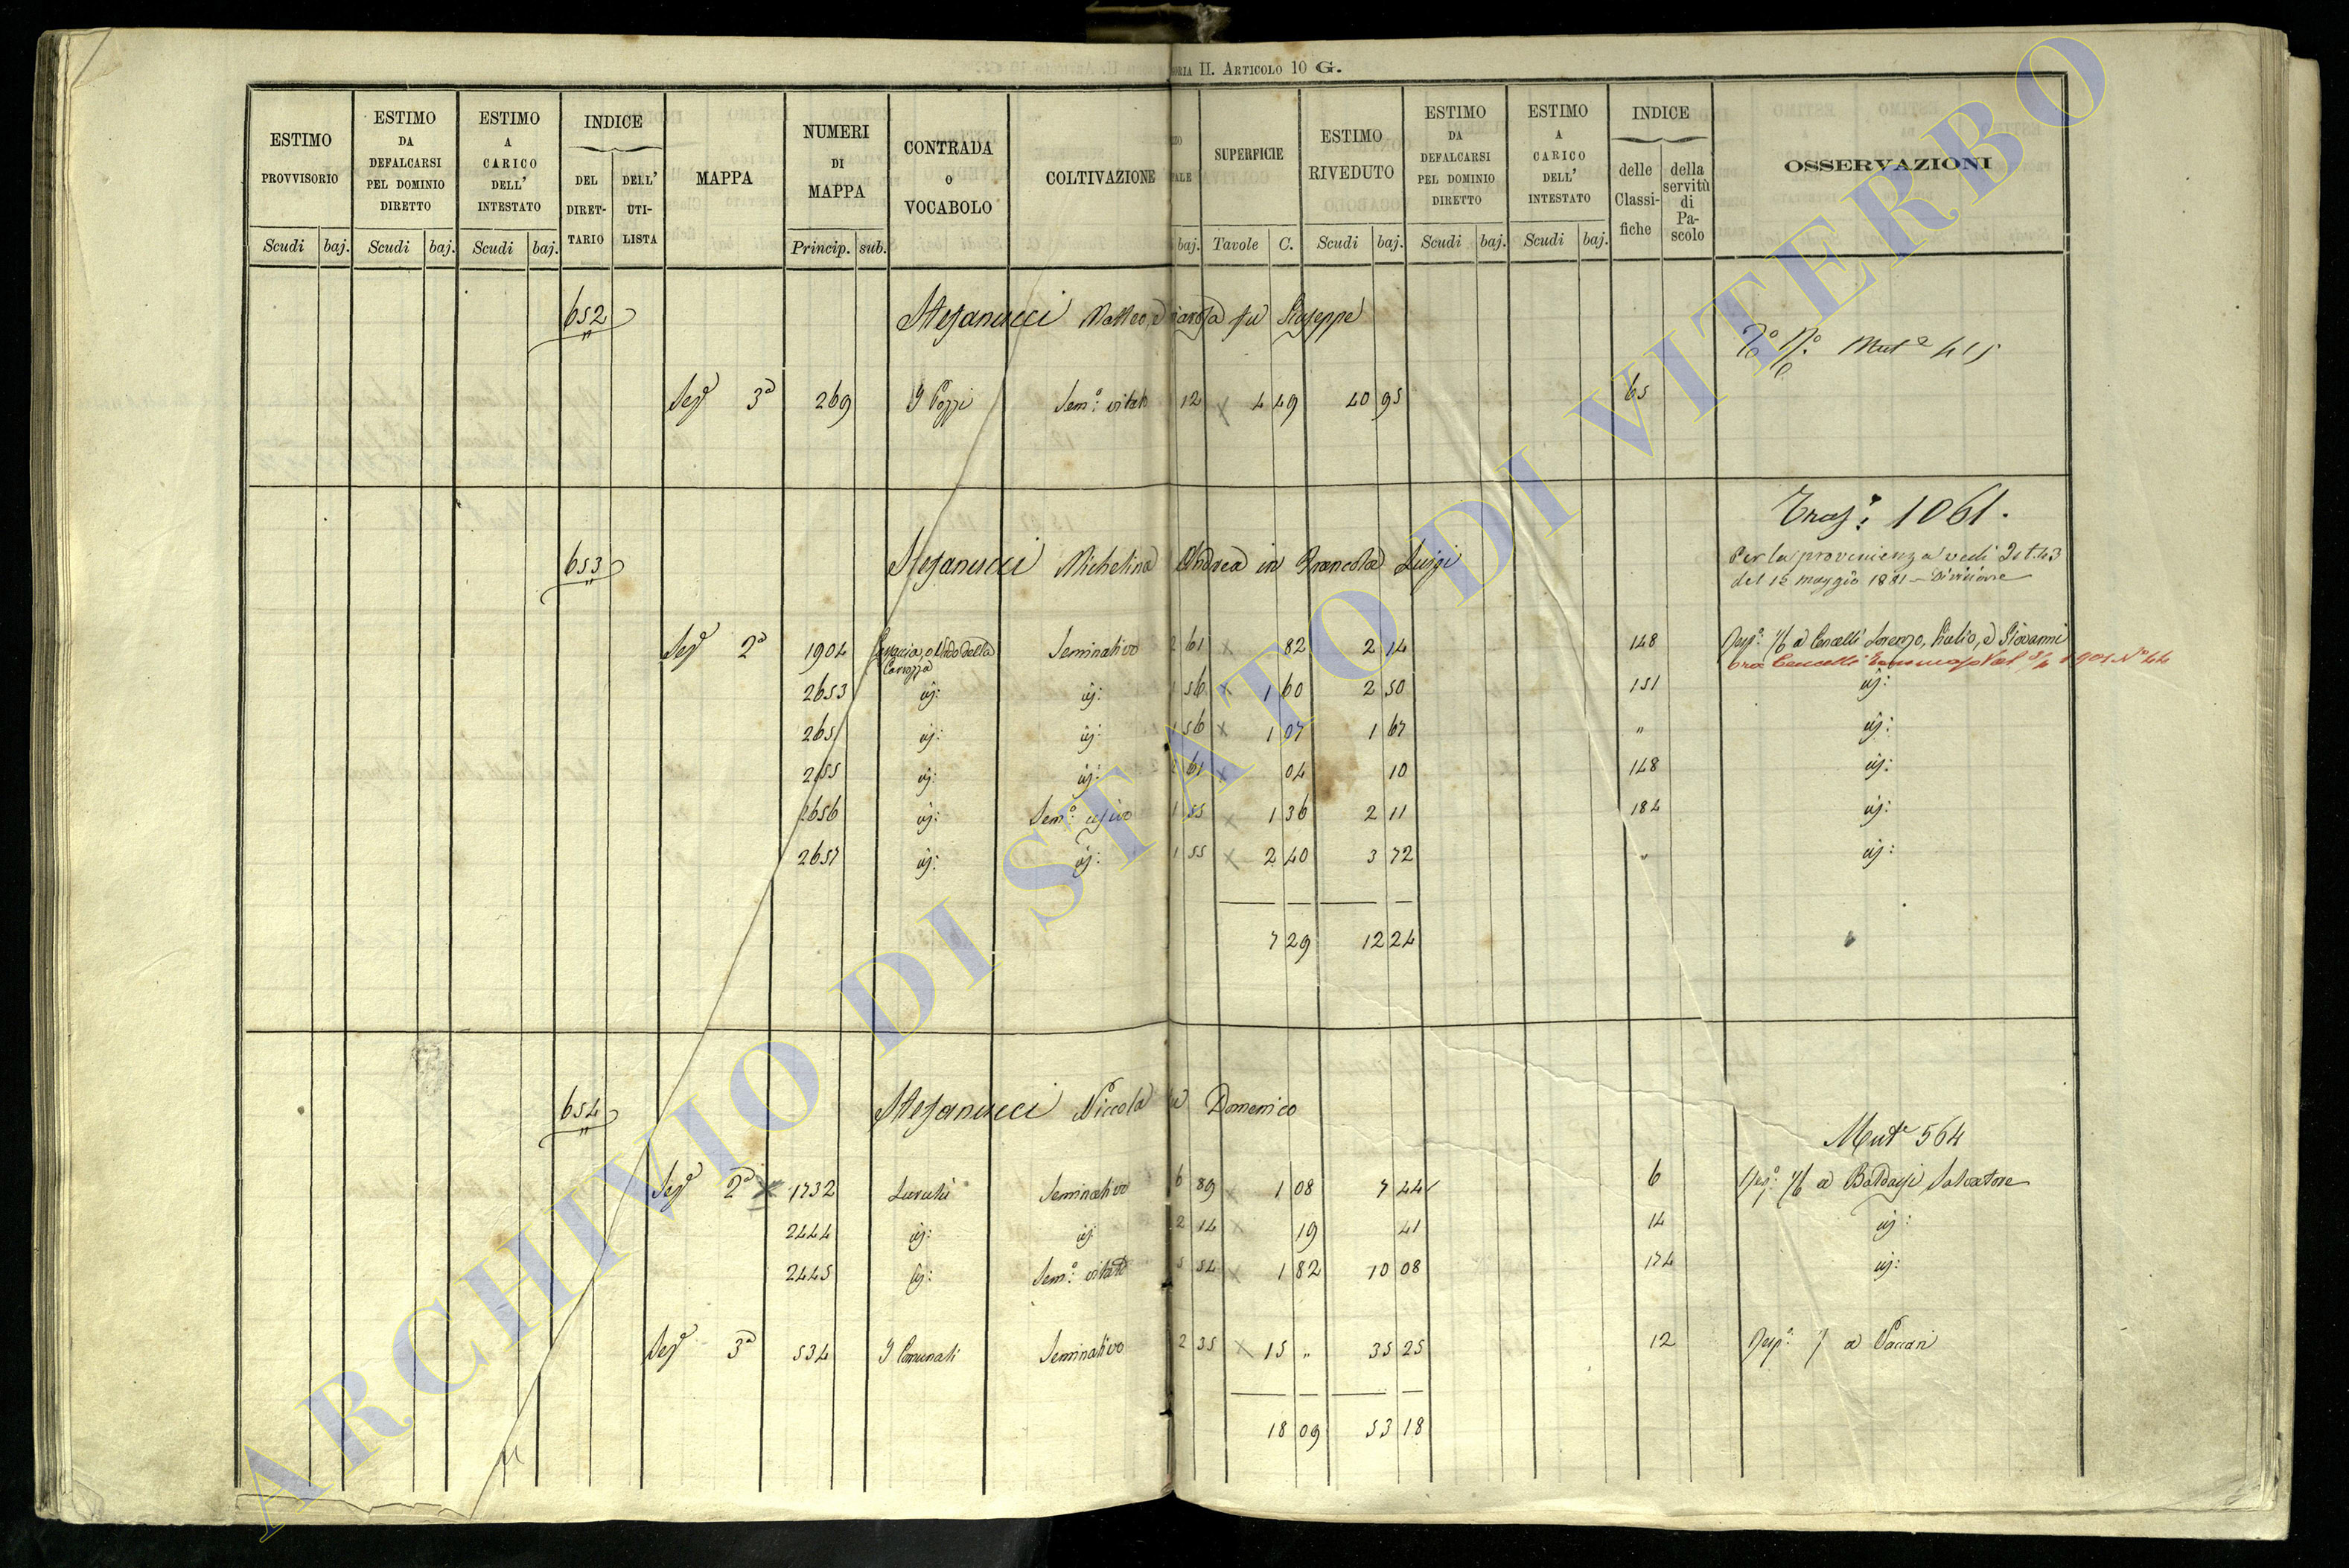 ORIA II. ARTICOLO 10 G.
ESTIMO PROVVISORIO
ESTIMO DA DEFALCARSI PEL DOMINIO DIRETTO
ESTIMO A CARICO DELL' INTESTATO
INDICE
DEL DIRETTARIO
DELL' UTILISTA
MAPPA
NUMERI DI MAPPA
CONTRADA O VOCABOLO
COLTIVAZIONE
SUPERFICIE
ESTIMO RIVEDUTO
ESTIMO DA DEFALCARSI PEL DOMINIO DIRETTO
ESTIMO A CARICO DELL' INTESTATO
INDICE
delle Classifiche
della servitù di Pascolo
OSSERVAZIONI
Scudi baj. Scudi baj. Scudi baj. Princip. sub. baj. Tavole C. Scudi baj. Scudi baj. Scudi baj.
652 Stefanucci Matteo, e fu Giuseppe
Mut.e 415
Sez.e 3a 269 I Pozzi Sem.o vitato 12 x 4 49 40 95 65
Tras.o: 1061.
653 Stefanucci Michelina Andrea in Luigi
Per la provenienza vedi
del 12 maggio 1881 - Divisione
Sez.e 2a 1904 o Nido della Seminativo 2 61 x 82 2 14 148 Resp.o a Cencelli Lorenzo, Giulio, e Giovanni
Carozza
ora Cencelli 1901 No 44
2653 id: id: 1 56 x 1 60 2 50 151 id:
265 id: id: 1 56 x 1 07 1 67 " id:
2655 id: id: 2 61 x 04 10 148 id:
2656 id: Sem.o 1 55 x 1 36 2 11 184 id:
2657 id: id: 1 55 x 2 40 3 72 " id:
7 29 12 24
654 Stefanucci Niccola fu Domenico
Mut.e 564
Sez.e 2a x 1732 Seminativo 6 89 x 1 08 7 44 6 Resp.o a Salvatore
2444 id: id 2 14 x 19 41 14 id:
2445 id: Sem.o vitato 5 54 x 1 82 10 08 174 id:
Sez.e 3a 534 I Comunali Seminativo 2 35 x 15 " 35 25 12 Resp.o a Vaccari
18 09 53 18
ARCHIVIO DI STATO DI VITERBO